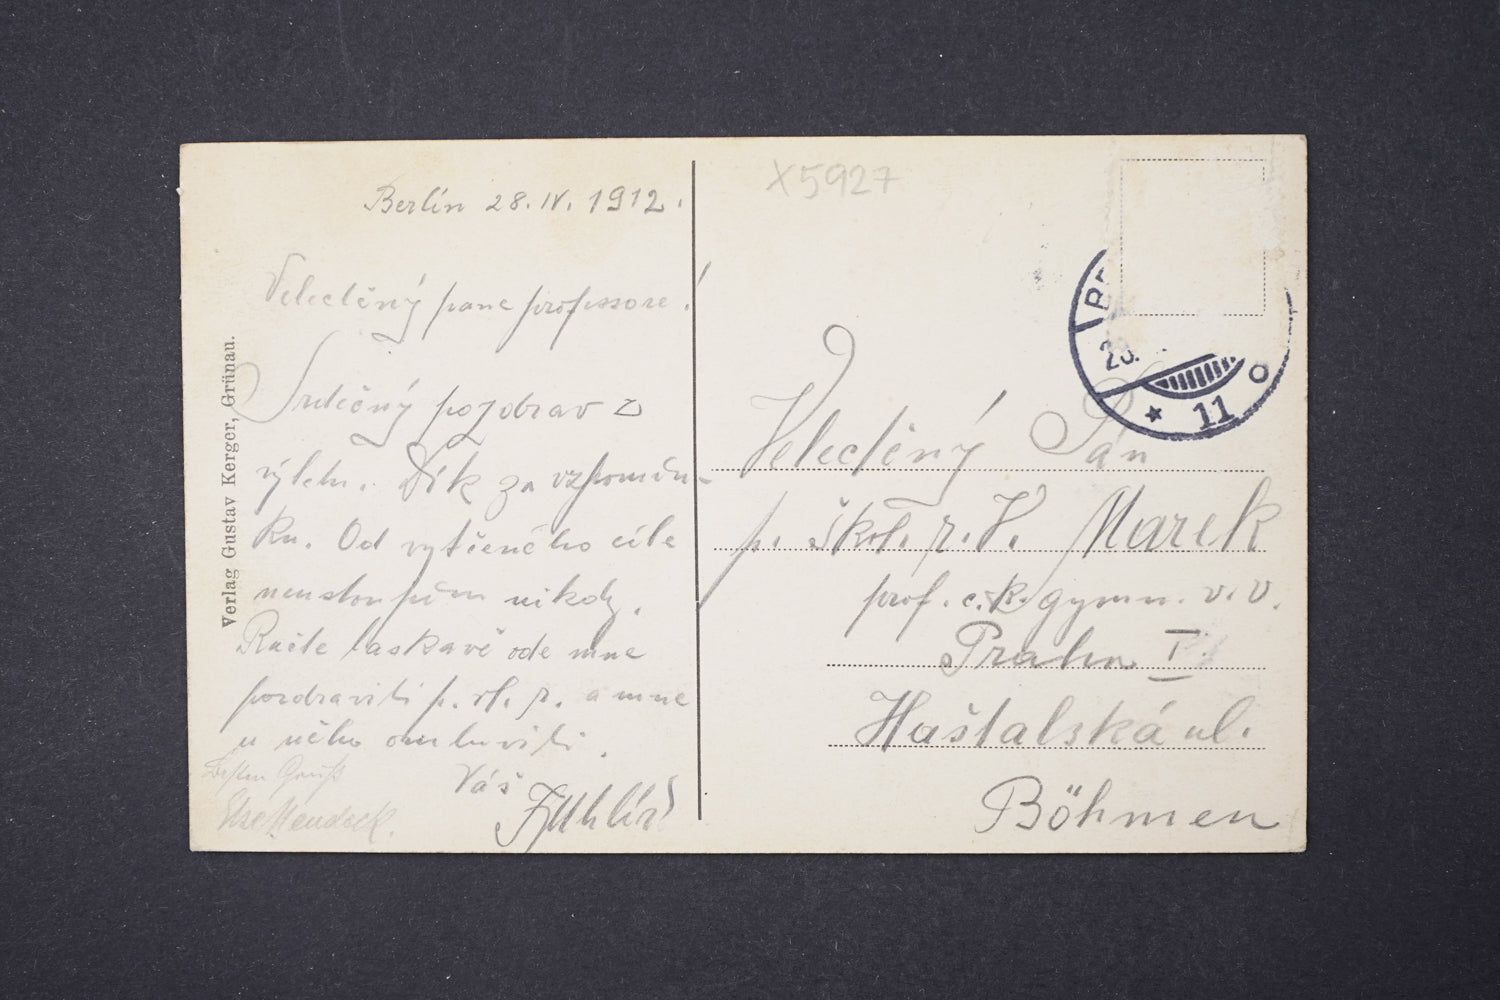 Berlin 28. IV. 1912.
Velectěný pane professore!
Srdečný pozdrav z
výletu. Dík za vzpomín-
ku. Od vytčeného cíle
neustoupím nikdy.
Račte laskavě ode mne
pozdraviti p. ř. a mne
u něho omluviti.
Váš
Besten Gruß
Verlag Gustav Kerger, Grünau.
X5927
11
Velectěný Pán
p. škol. r. V. Marek
prof. c. k. gymn. v. v.
Praha I
Haštalská ul.
Böhmen